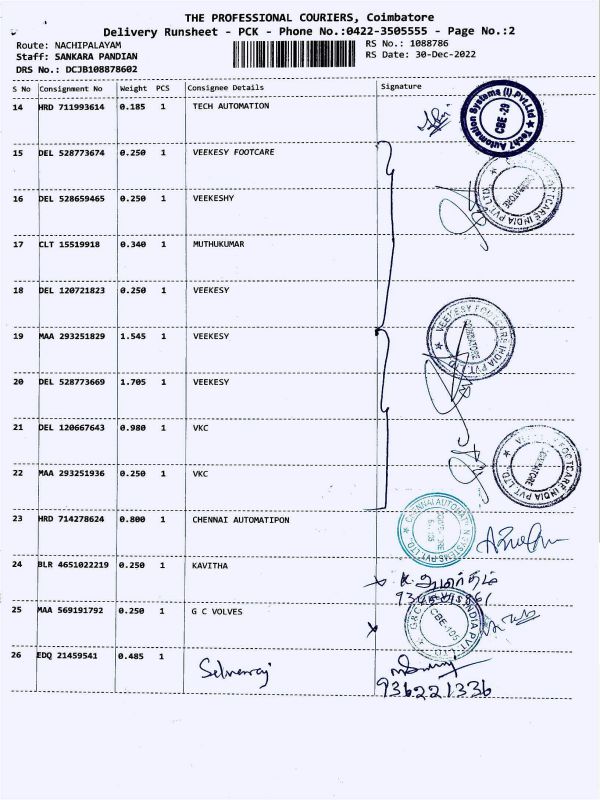 THE PROFESSIONAL COURIERS, Coimbatore
Delivery Runsheet - PCK - Phone No.:0422-3505555 - Page No.:2
Route: NACHIPALAYAM
RS No.: 1088786
Staff: SANKARA PANDIAN
RS Date: 30-Dec-2022
DRS No.: DCJB108878602
S No Consignment No Weight PCS Consignee Details Signature
14 HRD 711993614 0.185 1 TECH AUTOMATION
Tech7 Automation Systems (I) Pvt.Ltd ★ CBE -29
15 DEL 528773674 0.250 1 VEEKESY FOOTCARE
FOOTCARE INDIA PVT LTD ★
16 DEL 528659465 0.250 1 VEEKESHY
17 CLT 15519918 0.340 1 MUTHUKUMAR
18 DEL 120721823 0.250 1 VEEKESY
19 MAA 293251829 1.545 1 VEEKESY
VEEKESY FOOTCARE INDIA PVT. LTD. ★ COIMBATORE
20 DEL 528773669 1.705 1 VEEKESY
21 DEL 120667643 0.980 1 VKC
22 MAA 293251936 0.250 1 VKC
FOOTCARE INDIA PVT. LTD. ★
23 HRD 714278624 0.800 1 CHENNAI AUTOMATIPON
CHENNAI AUTOMATION SYSTEMS PVT. LTD.
24 BLR 4651022219 0.250 1 KAVITHA
25 MAA 569191792 0.250 1 G C VOLVES
INDIA PVT LTD CBE-105
26 EDQ 21459541 0.485 1 Selvenraj
936221336